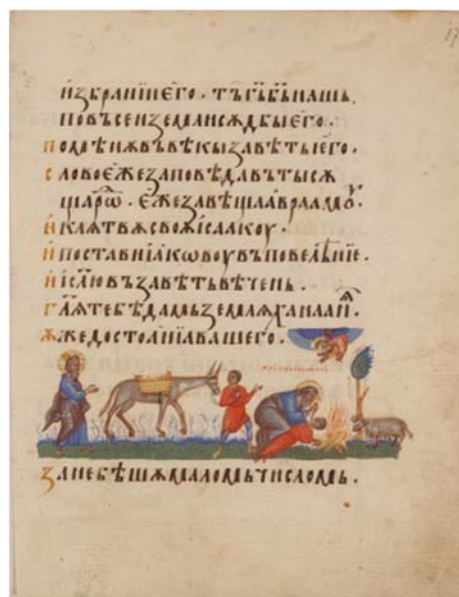 избранїи его · тъ г҃ь б҃ь нашь ·
по въсеи земли сѫдбы его ·
помѣнѫ въ вѣкы завѣть его ·
слово еже заповѣда въ тысѫ
щѫ рѡⷣ · еже завѣща авраамоу ·
и клѧтвѫ своѫ ісаакоу ·
и постави ѫ іаковоу въ повелѣние ·
и іс҃лю въ завѣть вѣчень ·
гл҃ѧ тебѣ дамь землѫ ханаан ·
ѫже достоаніа вашего ·
занебѣшѫ маломь числомь ·